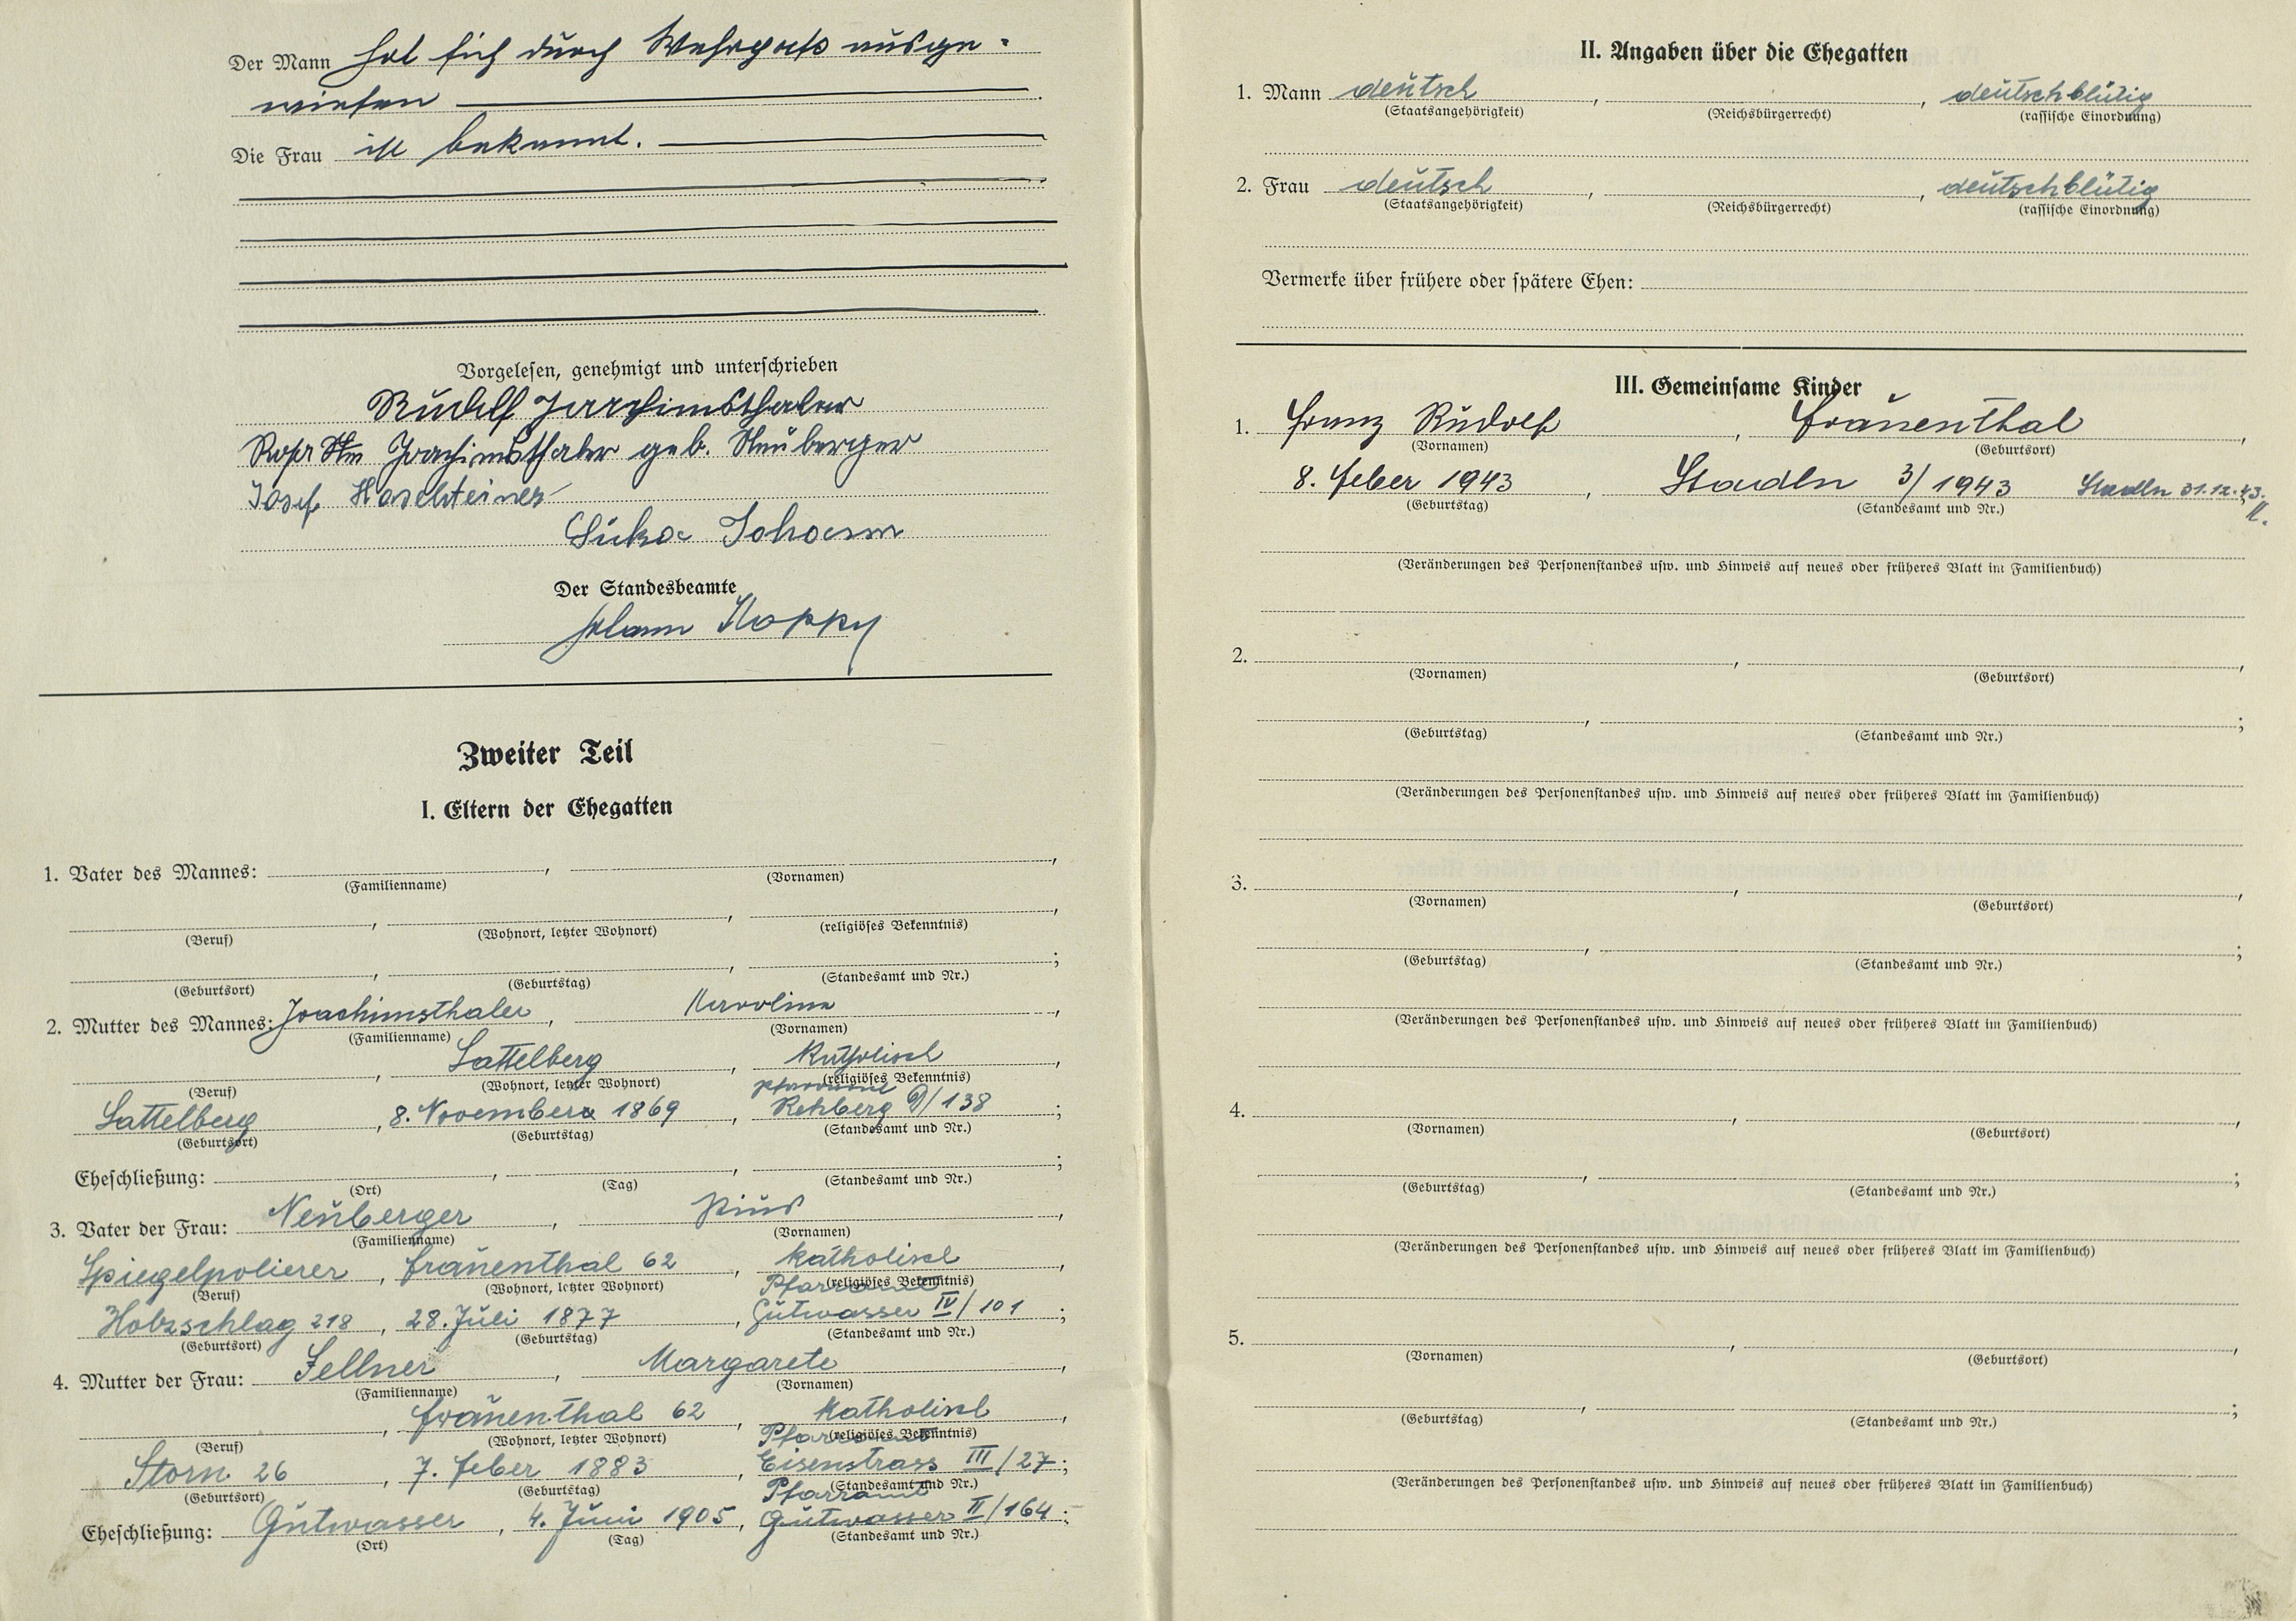 Der Mann hat sich durch Wehrpaß ausge-
wiesen
Die Frau ist bekannt.
Vorgelesen, genehmigt und unterschrieben
Rudolf Joachimsthaler
Rosa Joachimsthaler geb. Neuberger
Josef
Johann
Der Standesbeamte
Johann
Zweiter Teil
I. Eltern der Ehegatten
1. Vater des Mannes: , ,
(Familienname) (Vornamen)
, , ,
(Beruf) (Wohnort, letzter Wohnort) (religiöses Bekenntnis)
, , ;
(Geburtsort) (Geburtstag) (Standesamt und Nr.)
2. Mutter des Mannes: Joachimsthaler, Karolina,
(Familienname) (Vornamen)
, Sattelberg, katholisch,
(Beruf) (Wohnort, letzter Wohnort) (religiöses Bekenntnis)
Pfarramt
Sattelberg, 8. November 1869, Rehberg D/138;
(Geburtsort) (Geburtstag) (Standesamt und Nr.)
Eheschließung: , , ;
(Ort) (Tag) (Standesamt und Nr.)
3. Vater der Frau: Neuberger, Pius,
(Familienname) (Vornamen)
Spiegelpolierer, Frauenthal 62, katholisch,
(Beruf) (Wohnort, letzter Wohnort) (religiöses Bekenntnis)
Pfarramt
Holzschlag 218, 28. Juli 1877, Gutwasser IV/101;
(Geburtsort) (Geburtstag) (Standesamt und Nr.)
4. Mutter der Frau: Fellner, Margarete,
(Familienname) (Vornamen)
, Frauenthal 62, katholisch,
(Beruf) (Wohnort, letzter Wohnort) (religiöses Bekenntnis)
Pfarramt
Storn 26, 7. Feber 1883, Eisenstrass III/27;
(Geburtsort) (Geburtstag) (Standesamt und Nr.)
Pfarramt
Eheschließung: Gutwasser, 4. Juni 1905, Gutwasser II/164;
(Ort) (Tag) (Standesamt und Nr.)
II. Angaben über die Ehegatten
1. Mann deutsch, , deutschblütig
(Staatsangehörigkeit) (Reichsbürgerrecht) (rassische Einordnung)
2. Frau deutsch, , deutschblütig
(Staatsangehörigkeit) (Reichsbürgerrecht) (rassische Einordnung)
Vermerke über frühere oder spätere Ehen:
III. Gemeinsame Kinder
1. Franz Rudolf, Frauenthal,
(Vornamen) (Geburtsort)
8. Feber 1943, Stadln 3/1943 Stadln 31.12.43.
(Geburtstag) (Standesamt und Nr.)
(Veränderungen des Personenstandes usw. und Hinweis auf neues oder früheres Blatt im Familienbuch)
2. , ,
(Vornamen) (Geburtsort)
, ;
(Geburtstag) (Standesamt und Nr.)
(Veränderungen des Personenstandes usw. und Hinweis auf neues oder früheres Blatt im Familienbuch)
3. , ,
(Vornamen) (Geburtsort)
, ;
(Geburtstag) (Standesamt und Nr.)
(Veränderungen des Personenstandes usw. und Hinweis auf neues oder früheres Blatt im Familienbuch)
4. , ,
(Vornamen) (Geburtsort)
, ;
(Geburtstag) (Standesamt und Nr.)
(Veränderungen des Personenstandes usw. und Hinweis auf neues oder früheres Blatt im Familienbuch)
5. , ,
(Vornamen) (Geburtsort)
, ;
(Geburtstag) (Standesamt und Nr.)
(Veränderungen des Personenstandes usw. und Hinweis auf neues oder früheres Blatt im Familienbuch)